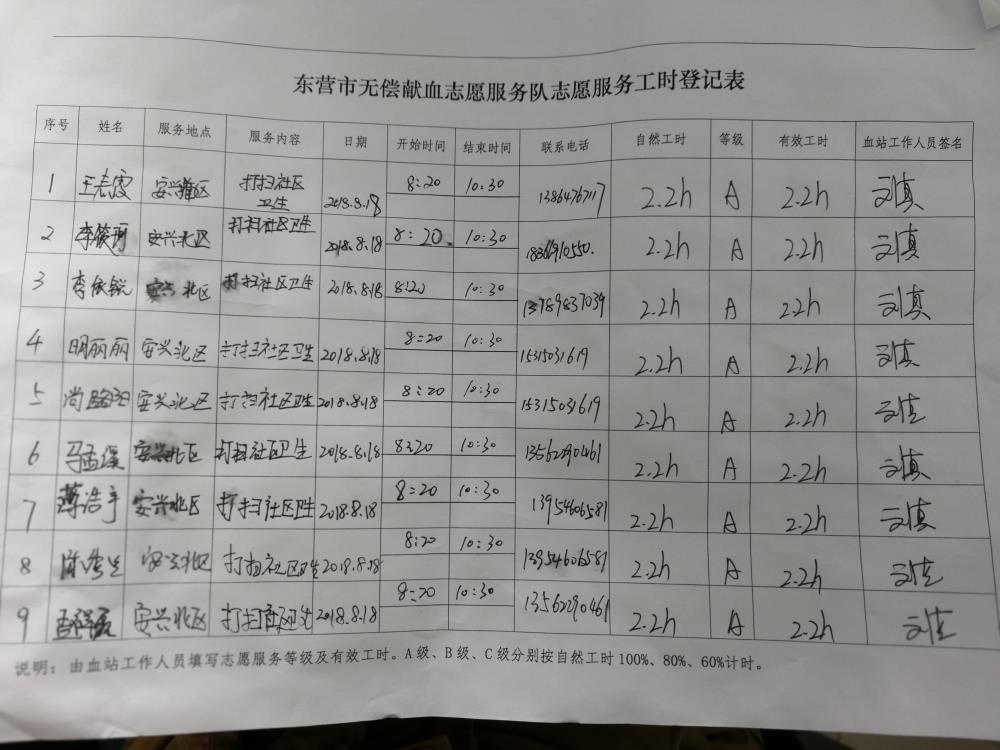 东营市无偿献血志愿服务队志愿服务工时登记表
序号 姓名 服务地点 服务内容 日期 开始时间 结束时间 联系电话 自然工时 等级 有效工时 血站工作人员签名
1 王志霞 安兴 区 打扫社区卫生 2018.8.18 8:20 10:30 13864767117 2.2h A 2.2h 刘真
2 李 安兴北区 打扫社区卫生 2018.8.18 8:20 10:30 2.2h A 2.2h 刘真
3 李 锐 安兴北区 打扫社区卫生 2018.8.18 8:20 10:30 13789837039 2.2h A 2.2h 刘真
4 明丽丽 安兴北区 打扫社区卫生 2018.8.18 8:20 10:30 15315031619 2.2h A 2.2h 刘真
5 尚 安兴北区 打扫社区卫生 2018.8.18 8:20 10:30 15315031619 2.2h A 2.2h 刘真
6 马孟 安兴北区 打扫社区卫生 2018.8.18 8:20 10:30 13562290461 2.2h A 2.2h 刘真
7 薄浩宇 安兴北区 打扫社区卫生 2018.8.18 8:20 10:30 13954606581 2.2h A 2.2h 刘真
8 陈 安兴北区 打扫社区卫生 2018.8.18 8:20 10:30 13954606581 2.2h A 2.2h 刘真
9 安兴北区 打扫社区卫生 2018.8.18 8:20 10:30 13562290461 2.2h A 2.2h 刘真
说明：由血站工作人员填写志愿服务等级及有效工时。A级、B级、C级分别按自然工时100%、80%、60%计时。